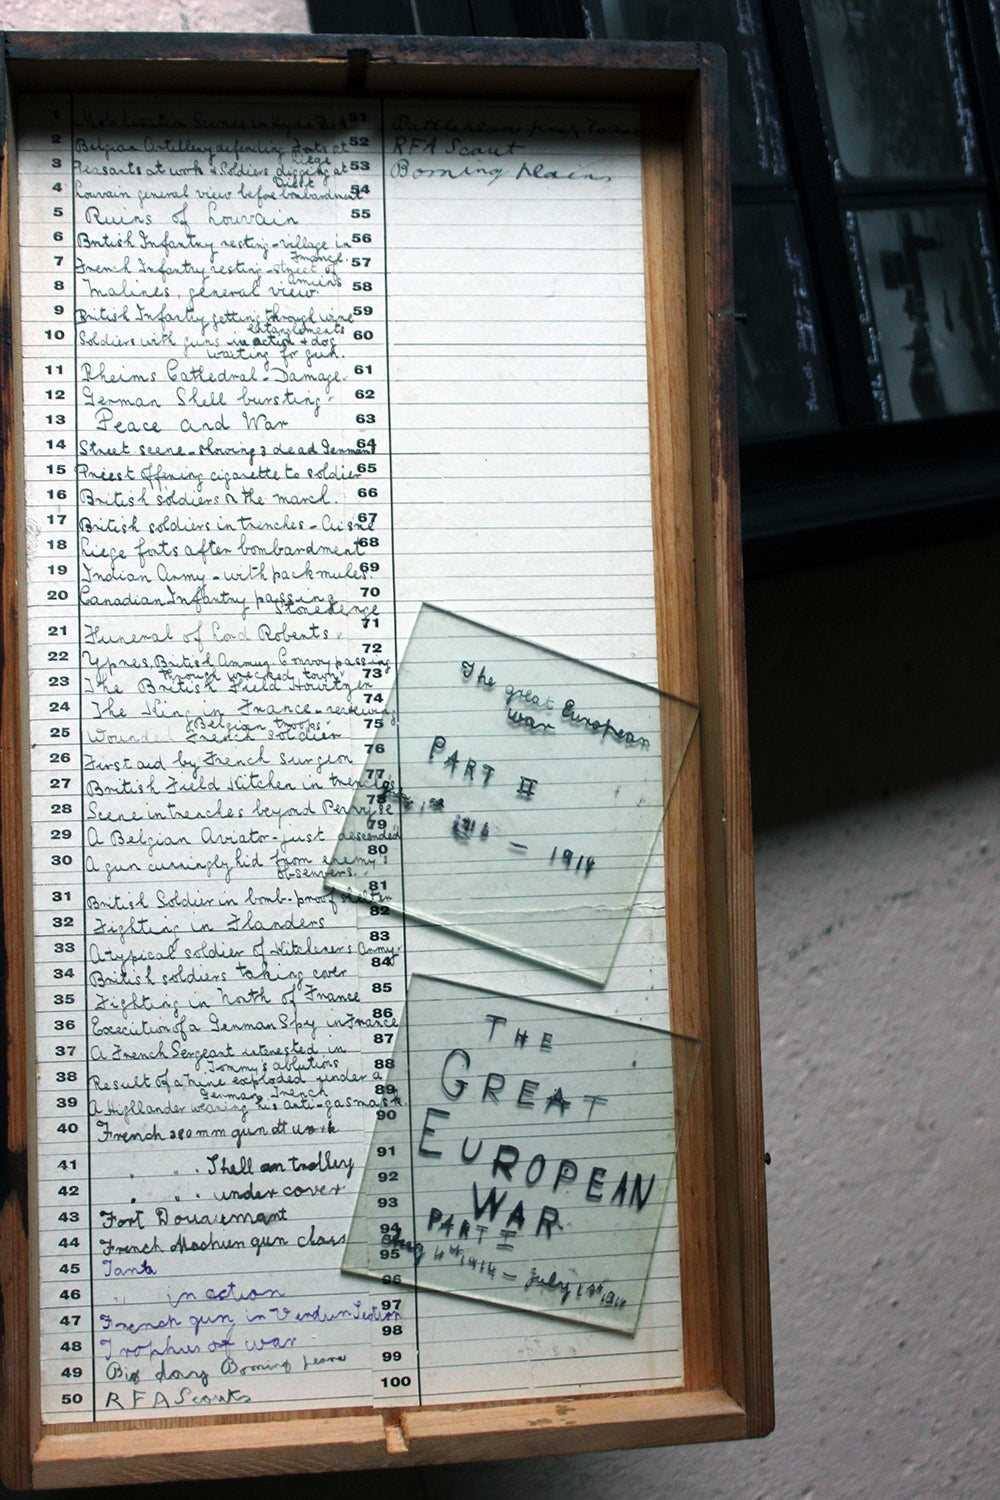 1 Mobilisation Scenes in Hyde Park
2 Belgian Artillery defending forts at Liege
3 Peasants at work & Soldiers digging at Diest
4 Louvain general view before bombardment
5 Ruins of Louvain
6 British Infantry resting - village in France.
7 French Infantry resting - street of Amiens
8 Malines, general view.
9 British Infantry getting through wire entanglements
10 Soldiers with guns in action & dog waiting for gun.
11 Rheims Cathedral - Damage.
12 German Shell bursting.
13 Peace and War
14 Street scene - showing 3 dead Germans
15 Priest offering cigarette to soldier
16 British soldiers on the march.
17 British soldiers in trenches - Aisne
18 Liege forts after bombardment
19 Indian Army - with pack mules.
20 Canadian Infantry passing Stonehenge
21 Funeral of Lord Roberts.
22 Ypres, British Ammun. Convoy passing through wrecked town
23 The British Field Howitzer
24 The King in France - reviewing Belgian troops.
25 Wounded French soldier
26 First aid by French Surgeon
27 British Field Kitchen in trenches
28 Scene in trenches beyond Pervyse
29 A Belgian Aviator - just descended
30 A gun cunningly hid from enemy's observers.
31 British Soldier in bomb-proof shelter
32 Fighting in Flanders
33 A typical soldier of Kitcheners Army.
34 British soldiers taking cover
35 Fighting in North of France
36 Execution of a German Spy in France
37 A French Sergeant interested in Tommy's ablutions
38 Result of a mine exploded under a German Trench
39 A Highlander wearing his anti-gas mask.
40 French mm gun at work
41 " " . Shell on trolley
42 " " . under cover
43 Fort Douaumont
44 French Machien gun class
45 Tank
46 " in action
47 French gun in Verdun Section
48 Trophies of war
49 Big
50 R F A Scouts
51
52 RFA Scout
53 Boming plains
54
55
56
57
58
59
60
61
62
63
64
65
66
67
68
69
70
71
72
73
74
75
76
77
78
79
80
81
82
83
84
85
86
87
88
89
90
91
92
93
94
95
96
97
98
99
100
The great European
war
PART II
1916 - 1914
THE
GREAT
EUROPEAN
WAR
PART I
Aug 4th 1914 - July 1st 191